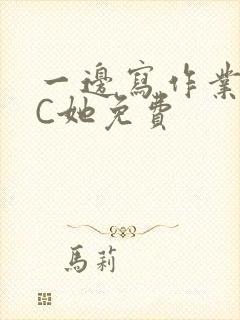 一邊寫作業
C她免費
馬莉